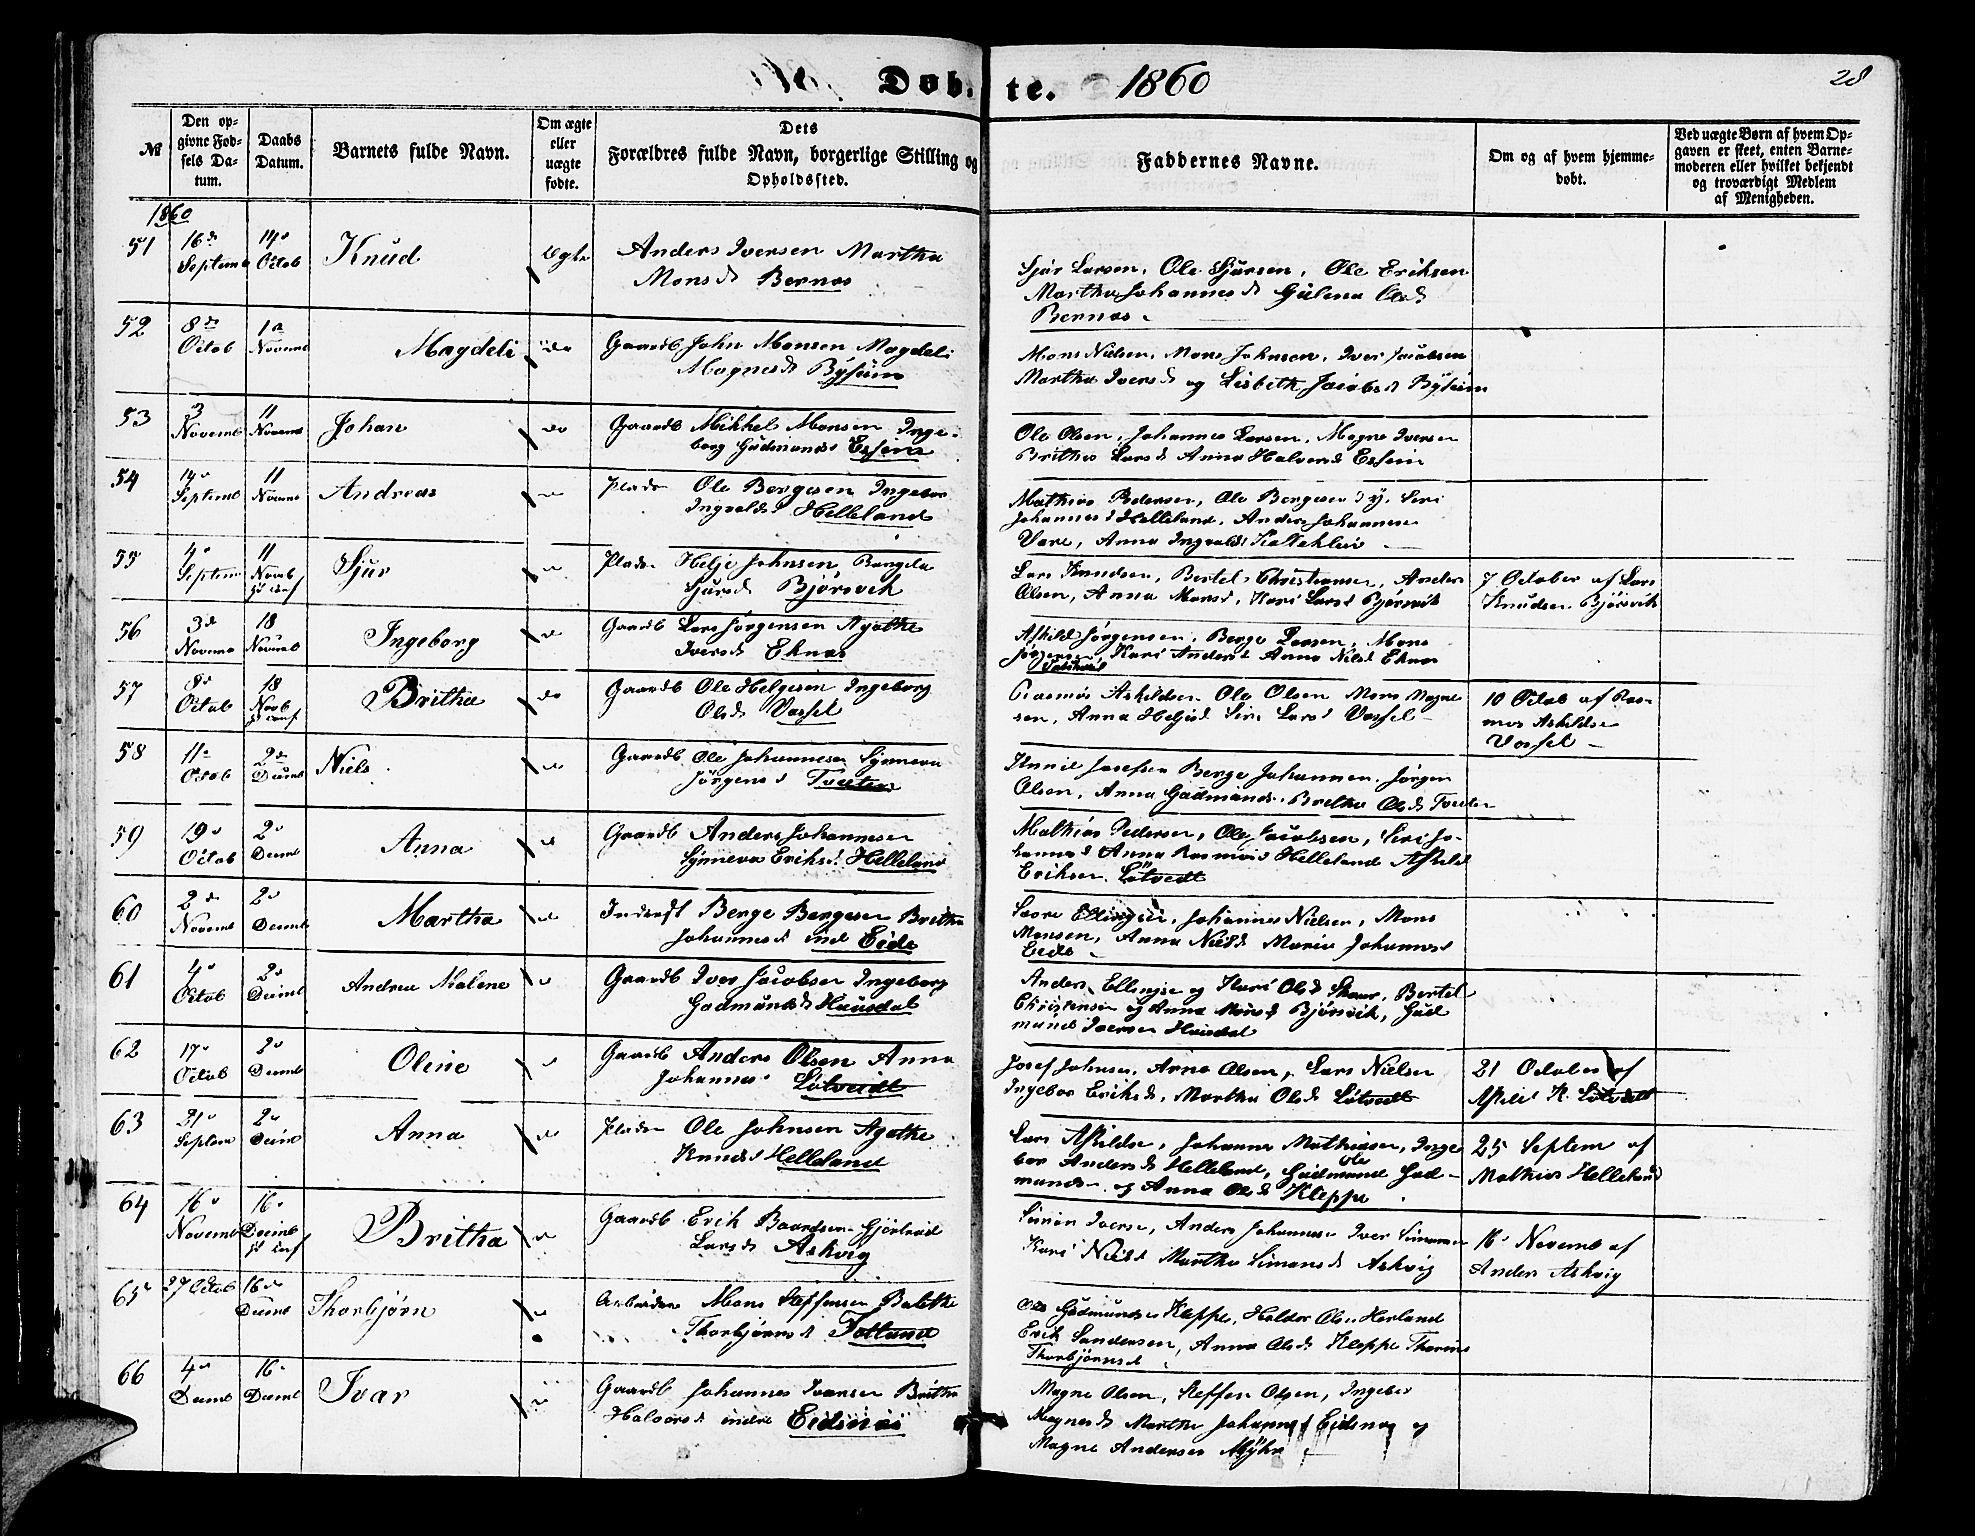 Døbte. 1860
28
№
Den op-
givne Fød-
sels Da-
tum.
Daabs
Datum.
Barnets fulde Navn.
Om ægte
eller
uægte
fødte.
Dets
Forældres fulde Navn, borgerlige Stilling og
Opholdssted.
Faddernes Navne.
Om og af hvem hjemme-
døbt.
Ved uægte Børn af hvem Op-
gaven er skeet, enten Barne-
moderen eller hvilket bekjendt
og troværdigt Medlem
af Menigheden.
1860
51 16de Septemb 14 Octob Knud Ægte Anders Iversen Martha
Monsd Bernæs
Sjur Larsen, Ole Sjursen, Ole Eriksen
Martha Johannesd Gulena Olsd
Bernæs
52 8de Octob Novemb Magdeli do Gaardb John Monsen Magdeli
Magnesd Byseim
Mons Nielsen, Mons Johnsen, Iver Jacobsen
Martha Iversd og Lisbeth Jacobsd Byseim
53 3 Novemb 11 Novemb Johan do Gaardb Mikkel Monsen Inge-
borg Gudmundsd
Ole Olsen, Johannes Larsen, Magne Iversen
Britha Larsd Anna Halvorsd
54 14 Septemb 11 Novemb Andreas Plads Ole Bergesen Ingebor
Ingvaldsd Helleland
Mathias Pedersen, Ole Bergesen Siri
Johannesd Helleland, Anders Johannesen
Anna Ingvaldsd
55 4 Septem 11 Novb Sjur Plads Helje Johnsen,
Sjursd Bjørsvik
Lars Knudsen, Bertel Christiansen, Anders
Olsen, Anna Monsd, Kari Larsd Bjørsvik
7 October af Lars
Knudsen Bjørsvik
56 3de Novemb 18 Novemb Ingeborg do Gaardb Lars Jørgensen Agathe
Iversd Eknæs
Askild Jørgensen, Berge Larsen, Mons
Jørgensen, Kari Andersd Anna Nilsd Eknæs
57 8 Octob 18 Novb Britha do Gaardb Ole Helgesen Ingeborg
Olsd Vassel
Rasmus Askildsen Ole Olsen Mons Magne
sen, Anna Heljesd Siri Larsd Vassel
10 Octob af Ras-
mus Askildse
Vassel
58 11 Octob 2de Decemb Niels do Gaardb Ole Johannesen Synneva
Jörgensd Tveiten
Josefsen Berge Johannesen, Jørgen
Olsen, Anna Gudmundsd Britha Olsd Tveiten
59 19 Octob 2 Decemb Anna do Gaardb Anders Johannesen
Synneva Eriksd Helleland
Mathias Pedersen, Ole Jacobsen, Siri Jo-
hannesd Anna Rasmusd Helleland Askild
Eriksen Løtvedt
60 2de Novemb 2 Decemb Martha do Inderst Berge Bergesen Britha
Johannesd ind Eide
Ellingsen, Johannes Nielsen, Mons
Monsen, Anna Nielsd Maria Johannesd
Eide
61 4 Octob 2 Decemb Andrea Malene Gaardb Iver Jacobsen Ingeborg
Gudmundsd Hausdal
Anders Ellingsen og Kari Olsd Skaar, Bertel
Christensen og Anna Monsd Bjørsvik, Gud
mund Iversen Hausdal
62 17 Octob 2 Decemb Oline Gaardb Anders Olsen Anna
Johannesd Løtveidt
Josef Johnsen, Arne Olsen, Lars Nielsen
Ingebor Eriksd, Martha Olsd Løtvedt
21 October af
Askild K. Løtvedt
63 21 Septem 2 Decemb Anna do Plads Ole Johnsen Agathe
Knudsd Helleland
Lars Askildsen, Johannes Mathiasen, Inge
bor Andersd Helleland, Gudmund Ole Gud-
munds og Anna Olsd Kleppe
25 Septem af
Mathias Helleland
64 16 Novemb 16 Decemb Britha Gaardb Erik Baardsen
Larsd Askvig
Simon Iverse, Anders Johannesen Iver Simonsen
Kari Nielsd Martha Simonsd Askvig
16 Novemb af
Anders Askvig
65 27 Octob 16de Decemb Thorbjørn Arbeider Mons Steffensen
Thorbjørnsd Fotland
Ole Gudmundsen Kleppe, Haldor Olsen Herland
Erik Sandersen, Anna Olsd Kleppe
Thorbjørnsd
66 4de Decemb 16 Decemb Ivar Gaardb Johannes Ivarsen Britha
Halvorsd indre Eidsnæs
Magne Olsen, Steffen Olsen, Ingebor
Magnesd Martha Johannesd Eidsnæs og
Magne Andersen Myhr